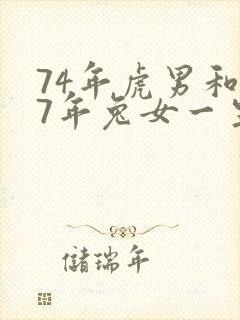 74年虎男和
7年兔女一
儲瑞年